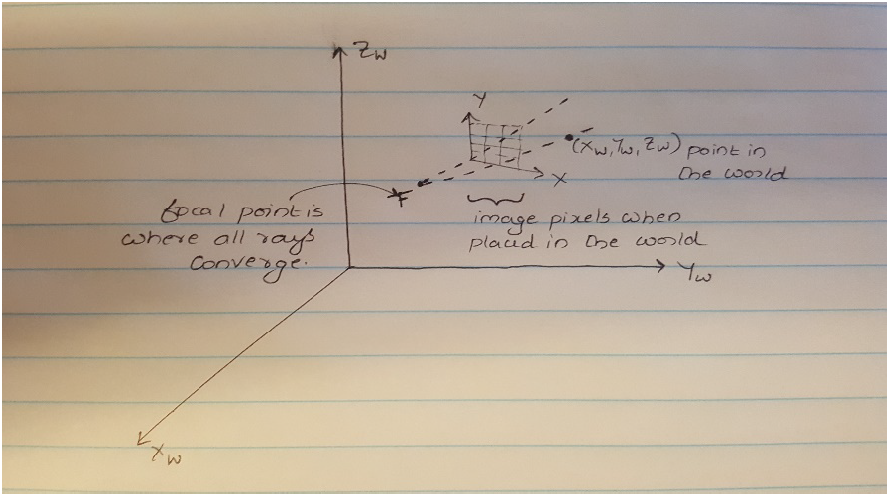 Zw
Y
(Xw, Yw, Zw) point in
the world
X
focal point is
where all rays
converge.
image pixels when
placed in the world
Yw
Xw